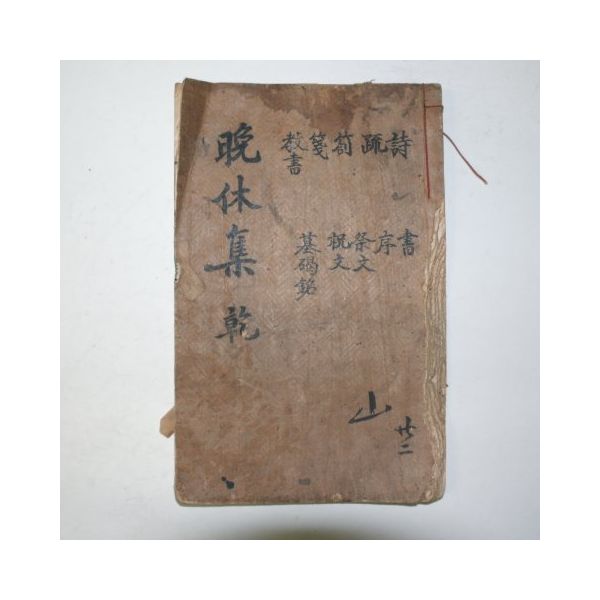 詩
疏
箚
箋
教書
書
序
祭文
祝文
墓碣銘
晚休集 乾
山
廿二